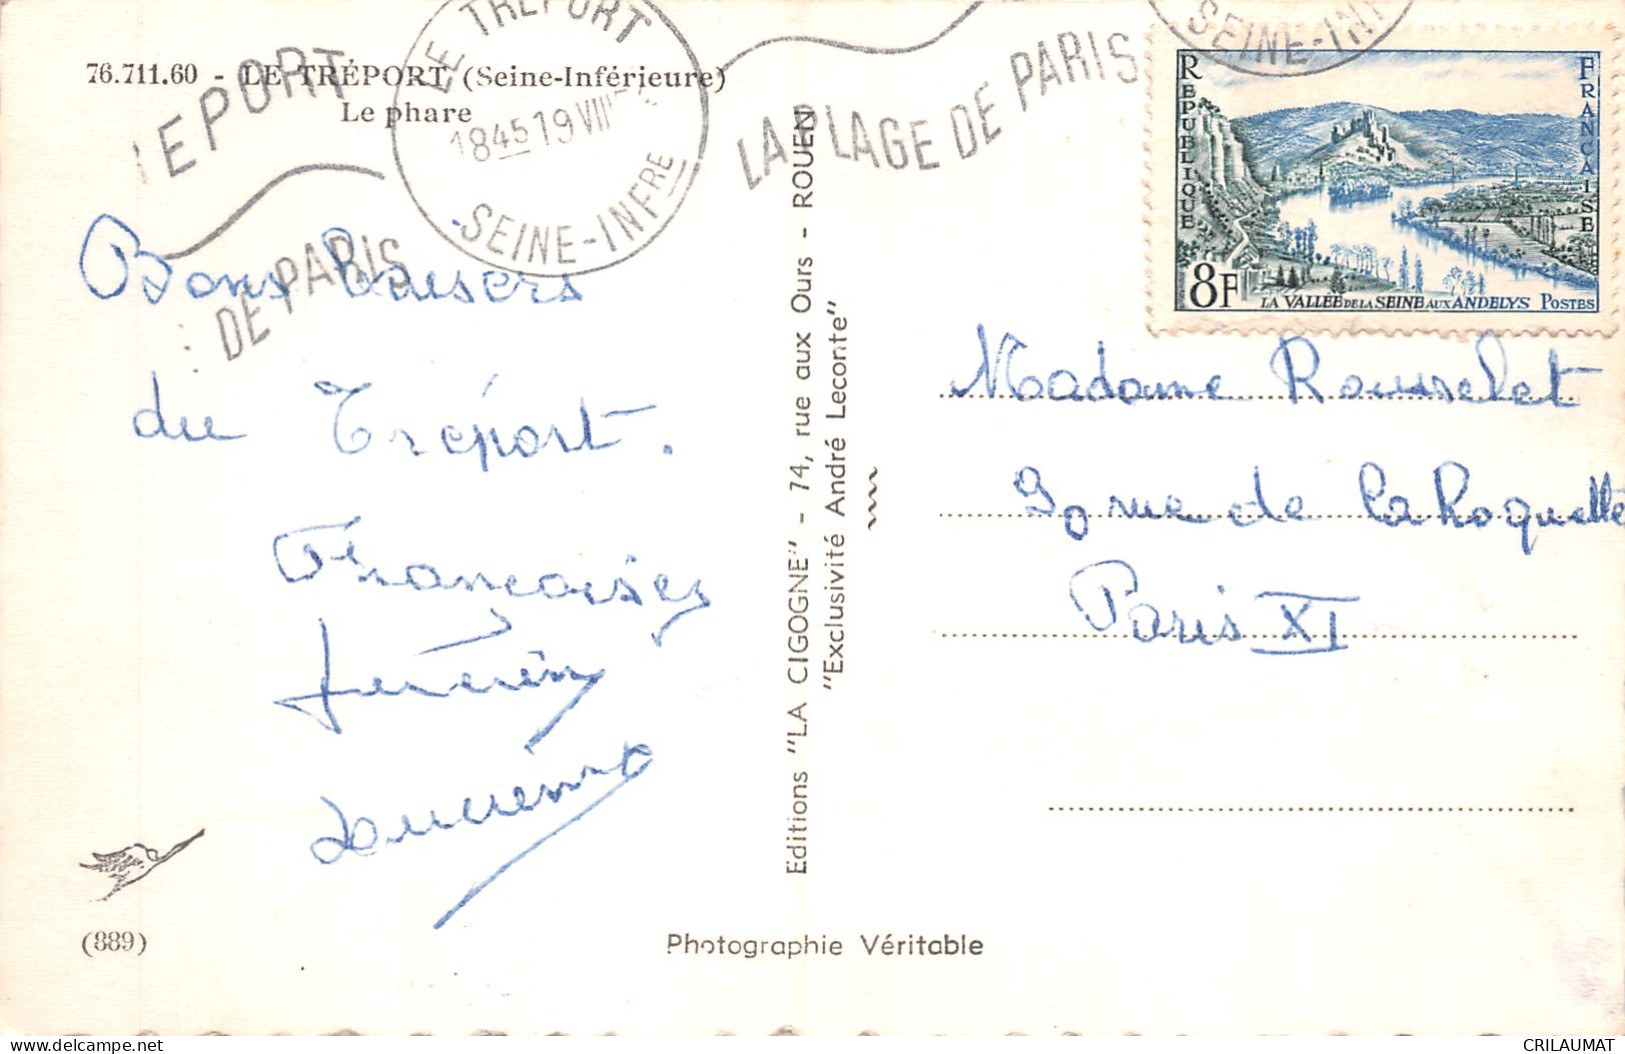 76.711.60 - LE TRÉPORT (Seine-Inférieure)
Le phare
EPORT
DE PARIS
LE TRÉPORT
1845 19 VIII
SEINE-INFRE
LA PLAGE DE PARIS
SEINE-INF
RÉPUBLIQUE FRANÇAISE
8F
LA VALLÉE DE LA SEINE AUX ANDELYS POSTES
Bons baisers
du Tréport.
Françoise
Lucienne
Editions "LA CIGOGNE" - 74, rue aux Ours - ROUEN
"Exclusivité André Leconte"
Madame Rousselet
90 rue de la Roquette
Paris XI
(889)
Photographie Véritable
delcampe.net
CRILAUMAT